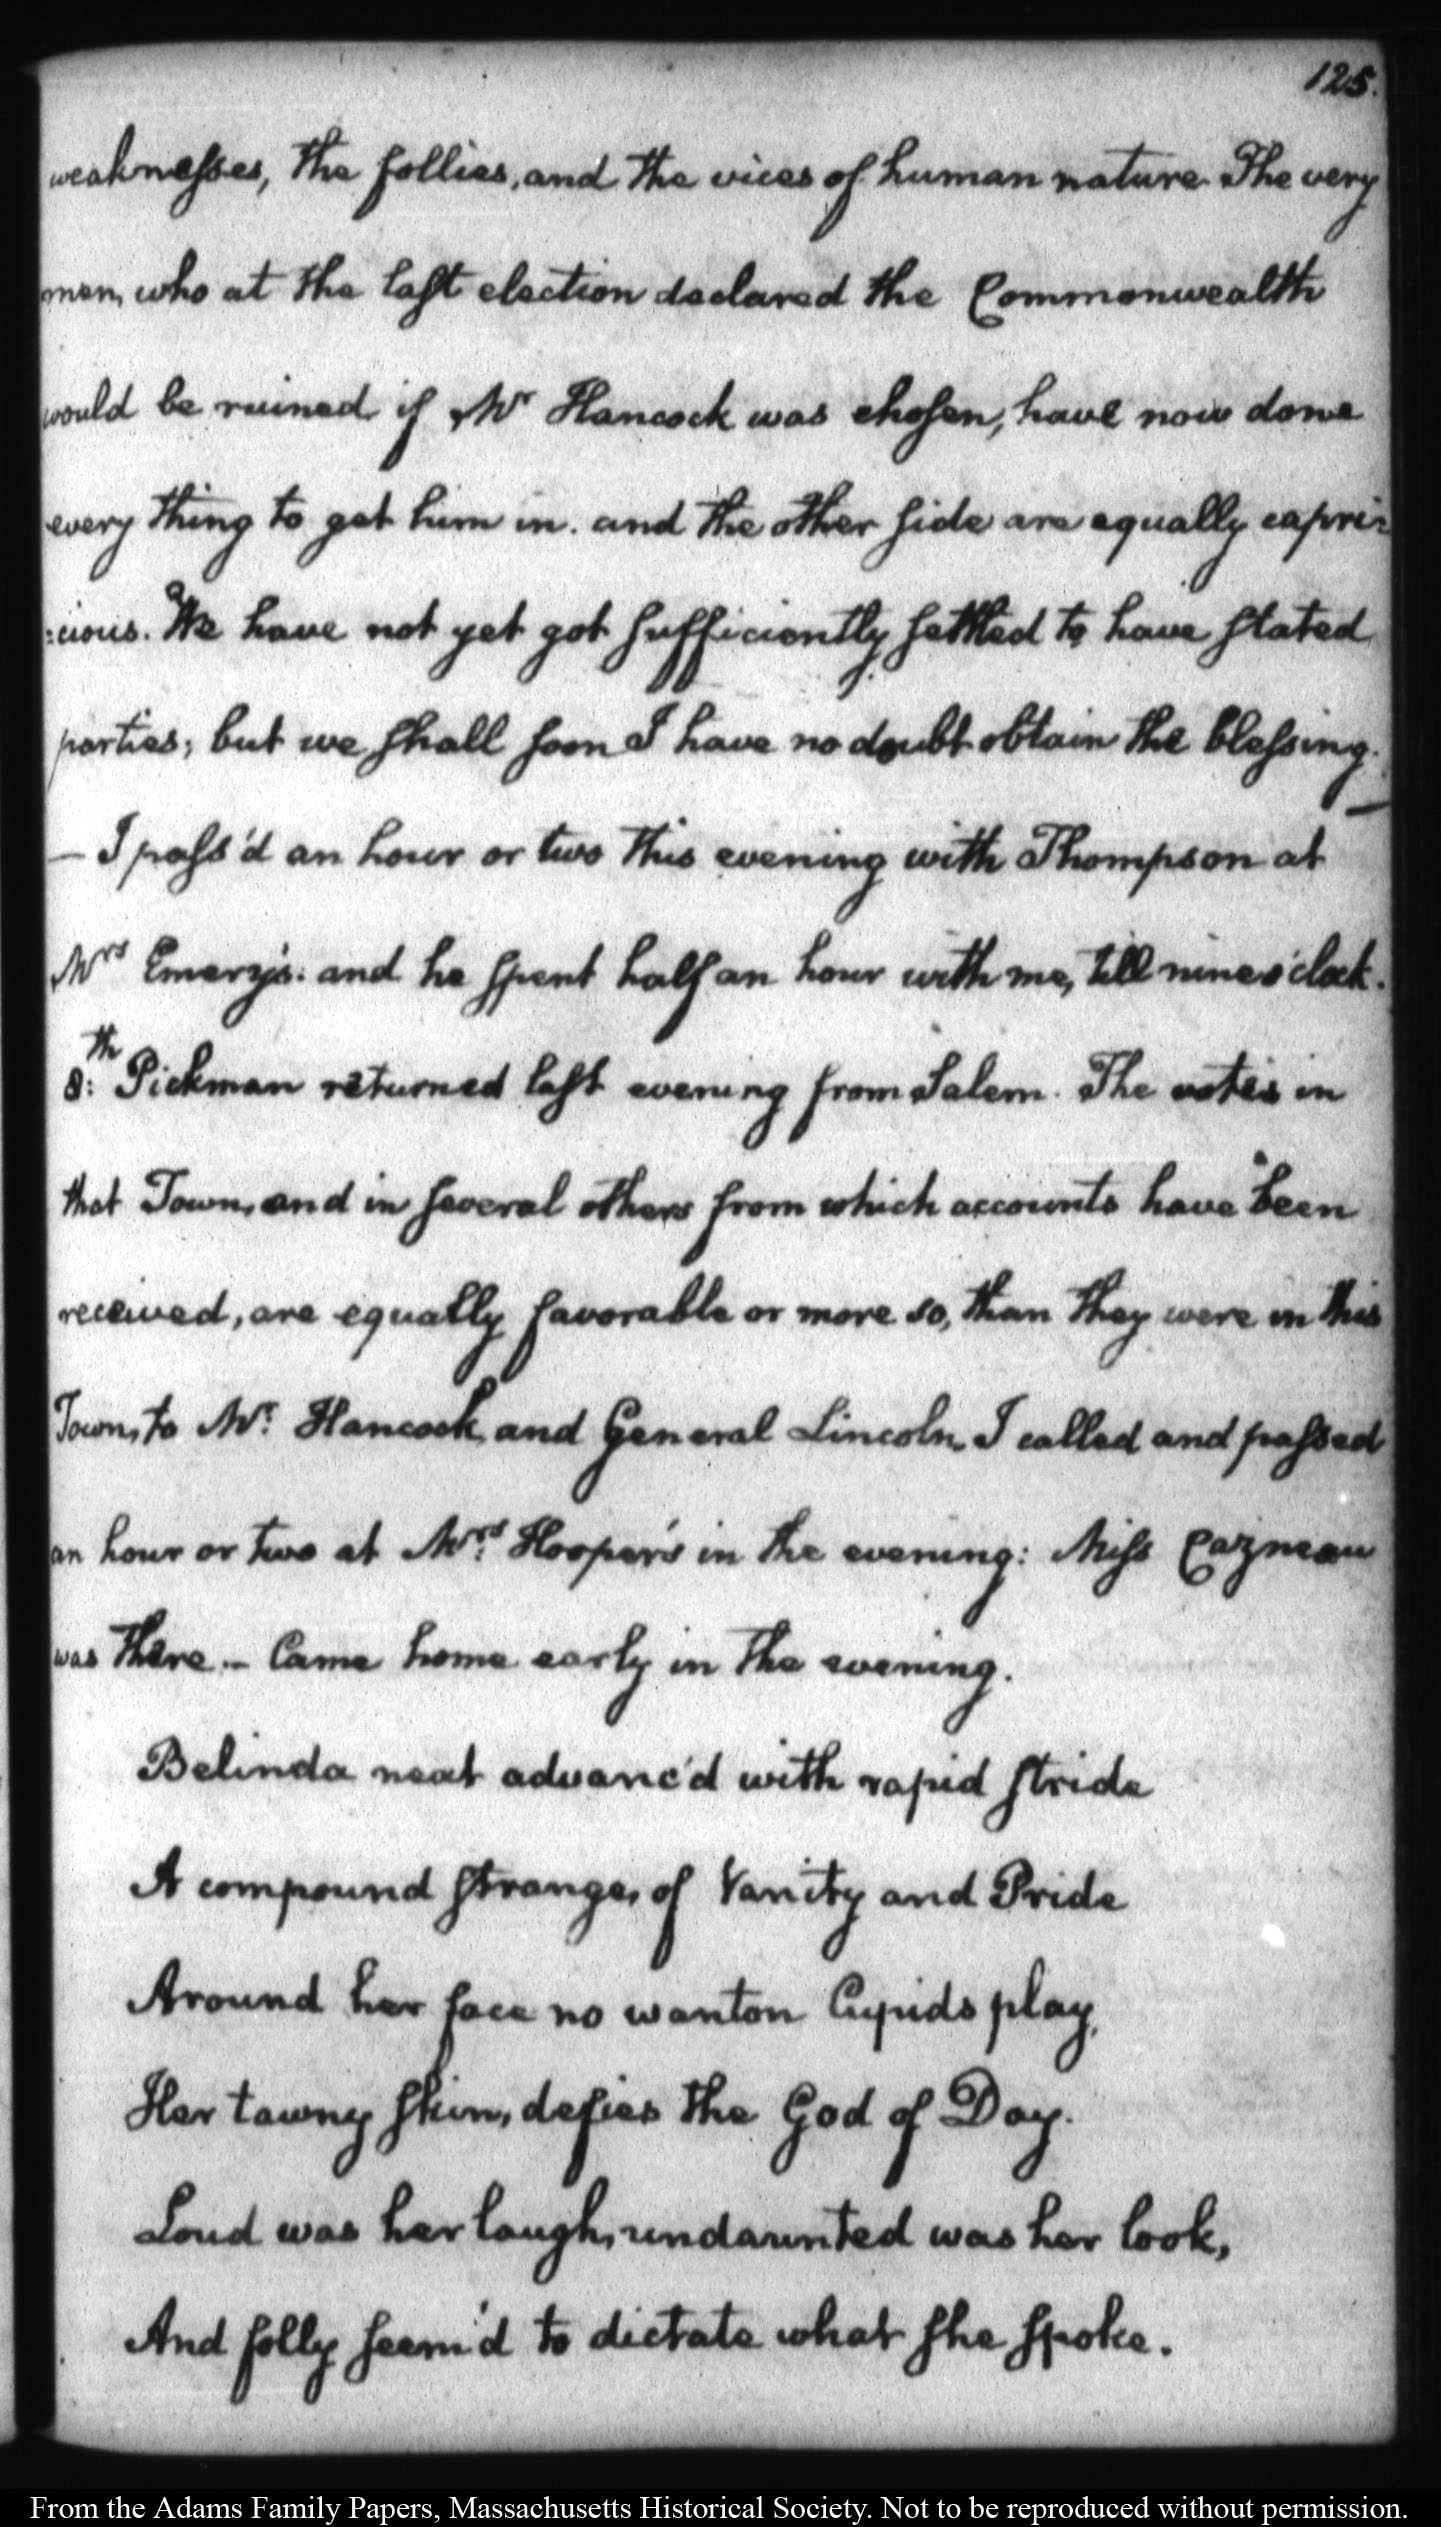 125.
weaknesses, the follies, and the vices of human nature. The very
men, who at the last election declared the Commonwealth
would be ruined if Mr Hancock was chosen, have now done
every thing to get him in. and the other side are equally capri=
=cious. We have not yet got sufficiently settled to have stated
parties; but we shall soon I have no doubt obtain the blessing. —
— I pass'd an hour or two this evening with Thompson at
Mrs Emery's. and he spent half an hour with me, till nine o'clock.
8:th Pickman returned last evening from Salem. The votes in
that Town, and in several others from which accounts have been
received, are equally favorable or more so, than they were in this
Town, to Mr. Hancock, and General Lincoln. I called and passed
an hour or two at Mrs. Hooper's in the evening: Miss Cazneau
was there. — Came home early in the evening.
Belinda next advanc'd with rapid stride
A compound strange, of Vanity and Pride
Around her face no wanton Cupids play,
Her tawny skin, defies the God of Day.
Loud was her laugh, undaunted was her look,
And folly seem'd to dictate what she spoke.
From the Adams Family Papers, Massachusetts Historical Society. Not to be reproduced without permission.